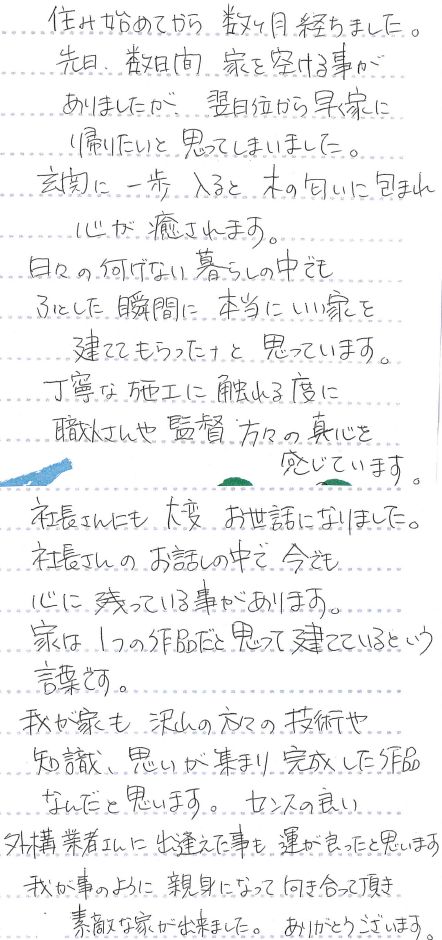 住み始めてから 数ヶ月 経ちました。
先日、数日間 家を空ける事が
ありましたが、翌日位から早く家に
帰りたいと 思ってしまいました。
玄関に 一歩 入ると 木の匂いに包まれ
心が 癒されます。
日々の何げない暮らしの中でも
ふとした 瞬間に 本当に いい家を
建ててもらったナと 思っています。
丁寧な施工に 触れる度に
職人さんや 監督 方々の 真心を
感じています。
社長さんにも 大変 お世話になりました。
社長さんの お話しの中で 今でも
心に 残っている事があります。
家は 1つの作品だと思って建てているという
言葉です。
我が家も 沢山の方々の 技術や
知識、思いが集まり 完成した作品
なんだと思います。 センスの良い
外構業者さんに 出逢えた事も 運が良ったと思います
我が事のように 親身になって向き合って頂き
素敵な家が出来ました。 ありがとうございます。